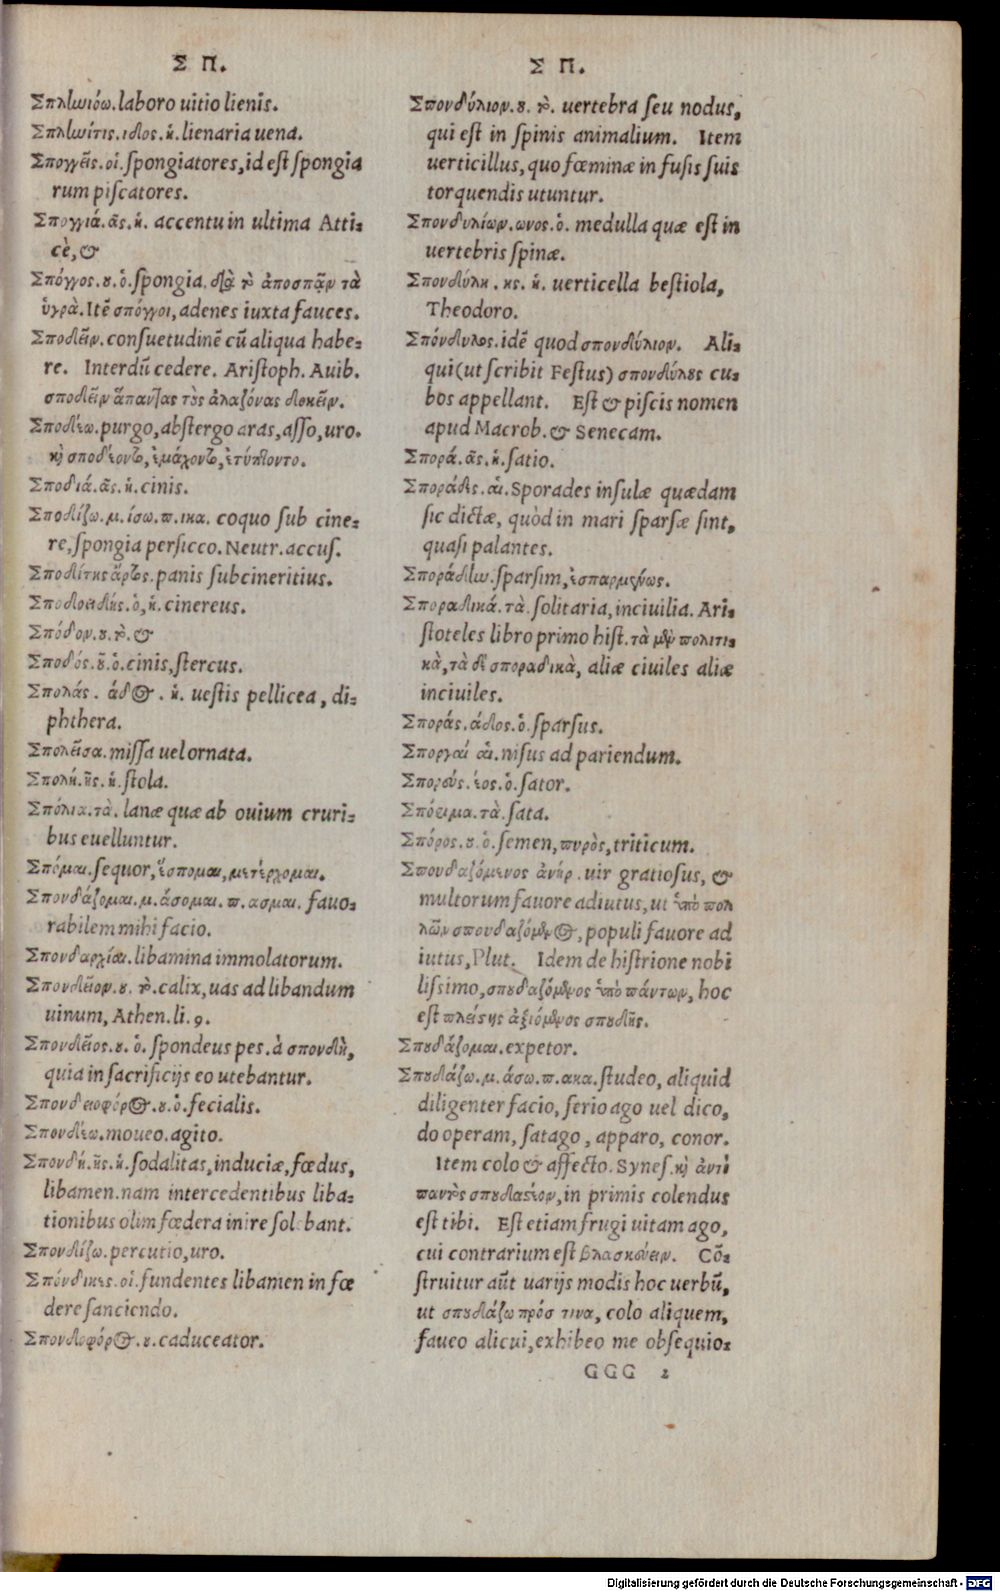 Σ Π.
Σπληνιόω. laboro uitio lienis.
Σπληνίτις. ιδος. ἡ. lienaria uena.
Σπογγεῖς. οἱ. ſpongiatores, id eſt ſpongia
rum piſcatores.
Σπογγιά. ᾶς. ἡ. accentu in ultima Atti⸗
cè, &
Σπόγγος. ου. ὁ. ſpongia. διὰ τὸ ἀποσπᾷν τὰ
ὑγρὰ. Itē σπόγγοι, adenes iuxta fauces.
Σποδεῖν. conſuetudinē cū aliqua habe⸗
re. Interdū cedere. Ariſtoph. Auib.
σποδεῖν ἅπαντας τοὺς ἀλαζόνας δοκεῖν.
Σποδέω. purgo, abſtergo aras, aſſo, uro.
καὶ σποδέοντο, ἐμάχοντο, ἐτύπτοντο.
Σποδιά. ᾶς. ἡ. cinis.
Σποδίζω. μ. ίσω. π. ικα. coquo ſub cine⸗
re, ſpongia perſicco. Neutr. accuſ.
Σποδίτης ἄρτος. panis ſubcineritius.
Σποδοειδής. ὁ, ἡ. cinereus.
Σπόδον. ου. τὸ. &
Σποδός. οῦ. ὁ. cinis, ſtercus.
Σπολάς. άδος. ἡ. ueſtis pellicea, di⸗
phthera.
Σπολεῖσα. miſſa uel ornata.
Σπολή. ῆς. ἡ. ſtola.
Σπόλια. τὰ. lanæ quæ ab ouium cruri⸗
bus euelluntur.
Σπόμαι. ſequor, ἕσπομαι, μετέρχομαι.
Σπονδάζομαι. μ. άσομαι. π. ασμαι. fauo⸗
rabilem mihi facio.
Σπονδαρχίαι. libamina immolatorum.
Σπονδεῖον. ου. τὸ. calix, uas ad libandum
uinum, Athen. li. 9.
Σπονδεῖος. ου. ὁ. ſpondeus pes. à σπονδὴ,
quia in ſacrificijs eo utebantur.
Σπονδειοφόρος. ου. ὁ. fecialis.
Σπονδέω. moueo. agito.
Σπονδή. ῆς. ἡ. ſodalitas, induciæ, fœdus,
libamen. nam intercedentibus liba⸗
tionibus olim fœdera inire ſolebant.
Σπονδίζω. percutio, uro.
Σπόνδικες. οἱ. fundentes libamen in fœ
dere ſanciendo.
Σπονδοφόρος. ου. caduceator.
Σ Π.
Σπονδύλιον. ου. τὸ. uertebra ſeu nodus,
qui eſt in ſpinis animalium. Item
uerticillus, quo fœminæ in fuſis ſuis
torquendis utuntur.
Σπονδυλίων. ωνος. ὁ. medulla quæ eſt in
uertebris ſpinæ.
Σπονδύλη. ης. ἡ. uerticella beſtiola,
Theodoro.
Σπόνδυλος. idē quod σπονδύλιον. Ali⸗
qui (ut ſcribit Feſtus) σπονδύλους cu⸗
bos appellant. Eſt & piſcis nomen
apud Macrob. & Senecam.
Σπορά. ᾶς. ἡ. ſatio.
Σποράδες. αἱ. Sporades inſulæ quædam
ſic dictæ, quòd in mari ſparſæ ſint,
quaſi palantes.
Σποράδην. ſparſim, ἐσπαρμένως.
Σποραδικά. τὰ. ſolitaria, inciuilia. Ari⸗
ſtoteles libro primo hiſt. τὰ μὲν πολιτι⸗
κὰ, τὰ δὲ σποραδικὰ, aliæ ciuiles aliæ
inciuiles.
Σποράς. άδος. ὁ. ſparſus.
Σποργαί αἱ. niſus ad pariendum.
Σπορεύς. έος. ὁ. ſator.
Σπόριμα. τὰ. ſata.
Σπόρος. ου. ὁ. ſemen, πυρὸς, triticum.
Σπουδαζόμενος ἀνήρ. uir gratioſus, &
multorum fauore adiutus, ut ὑπὸ πολ
λῶν σπουδαζόμενος, populi fauore ad
iutus, Plut. Idem de hiſtrione nobi
liſſimo, σπουδαζόμενος ὑπὸ πάντων, hoc
eſt πλείστης ἀξιόμενος σπουδῆς.
Σπουδάζομαι. expetor.
Σπουδάζω. μ. άσω. π. ακα. ſtudeo, aliquid
diligenter facio, ſerio ago uel dico,
do operam, ſatago, apparo, conor.
Item colo & affecto. Syneſ. καὶ ἀντὶ
παντὸς σπουδαστέον, in primis colendus
eſt tibi. Eſt etiam frugi uitam ago,
cui contrarium eſt βλασκεύειν. Cō⸗
ſtruitur aūt uarijs modis hoc uerbū,
ut σπουδάζω πρός τινα, colo aliquem,
faueo alicui, exhibeo me obſequio⸗
GGG 2
Digitalisierung gefördert durch die Deutsche Forschungsgemeinschaft - DFG